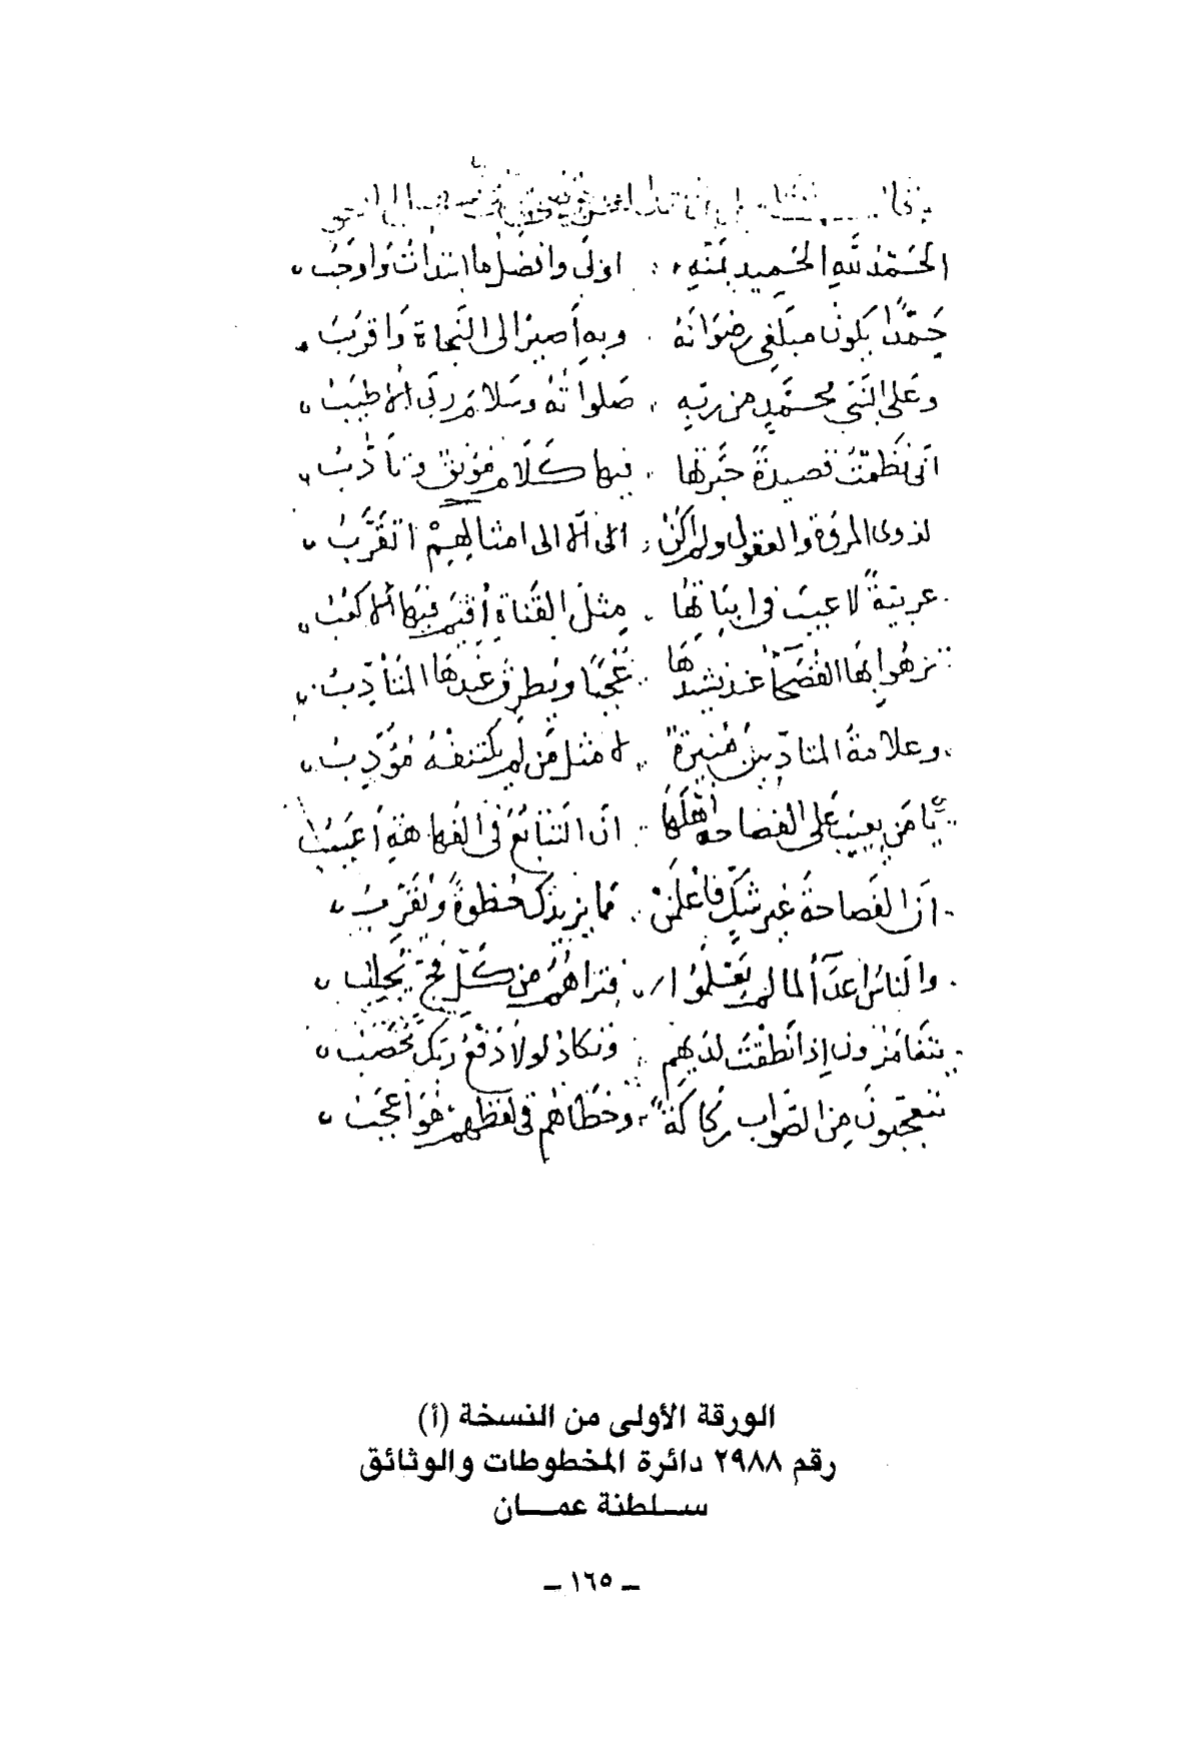 الحَمْدُ للهِ الحَمِيدِ بمَنّهِ أوْلَى وافضَلُ ما ابتدأتُ وَاوجَبُ
حَمْدًا يكُونُ مبلّغى رضْوَانَهُ وبهِ أصيرُ الى النَّجاةِ وَاقرَبُ
وعَلى النَّبَيِ محمَّدٍ من ربّهِ صَلواتُهُ وسَلامُ ربّى الأطيَبُ
انّى نظَمْتُ قصيدةً حبَّرتُها فيها كَلَامٌ مُونِقٌ وتأدُّبُ
لذوى المروّة والعقول ولم اكُنْ الّا الى امثالِهِمْ اتقَرَّبُ
عربيّةً لا عيبَ فى ابيَاتِهَا مِثلَ القَناةِ أُقيمَ فِيهَا الاكعُبُ
تزهُوا بهَا الفُصَحآءُ عندَ نشيدِهَا عُجْبًا ويُطرِقُ عندَهَا المتَأدِّبُ
وعلامةُ المتأدّبينَ مُنيرةٌ لا مثلَ مَن لَم يكتنفْهُ مُؤَدِّبُ
يا مَن يعيبُ على الفصَاحه أهْلَهَا انّ التتَابُعَ فى الفهاهَةِ أعيَبُ
انّ الفَصاحةَ غيرَ شكٍّ فاعْلَمَنْ مما يزيدُكَ حُظْوةً ويُقَرّبُ
والنّاسُ اعدَآءٌ لما لم يَعْلَمُوا فتراهُمُ من كلِّ فجٍّ يُجْلِبُ
يتغامَزُونَ إذا نَطَقْتَ لدَيهِم وتكادُ لولا دَفْعُ ربِّكَ تُحصَبُ
يتعجّبونَ مِنَ الصَّوابِ ركاكةً وخطَاهُم فى لفظِهِم هُوَ أعْجَبُ
الورقة الأولى من النسخة (أ)
رقم ٢٩٨٨ دائرة المخطوطات والوثائق
سـلـطنة عمـــان
ـ ١٦٥ ـ